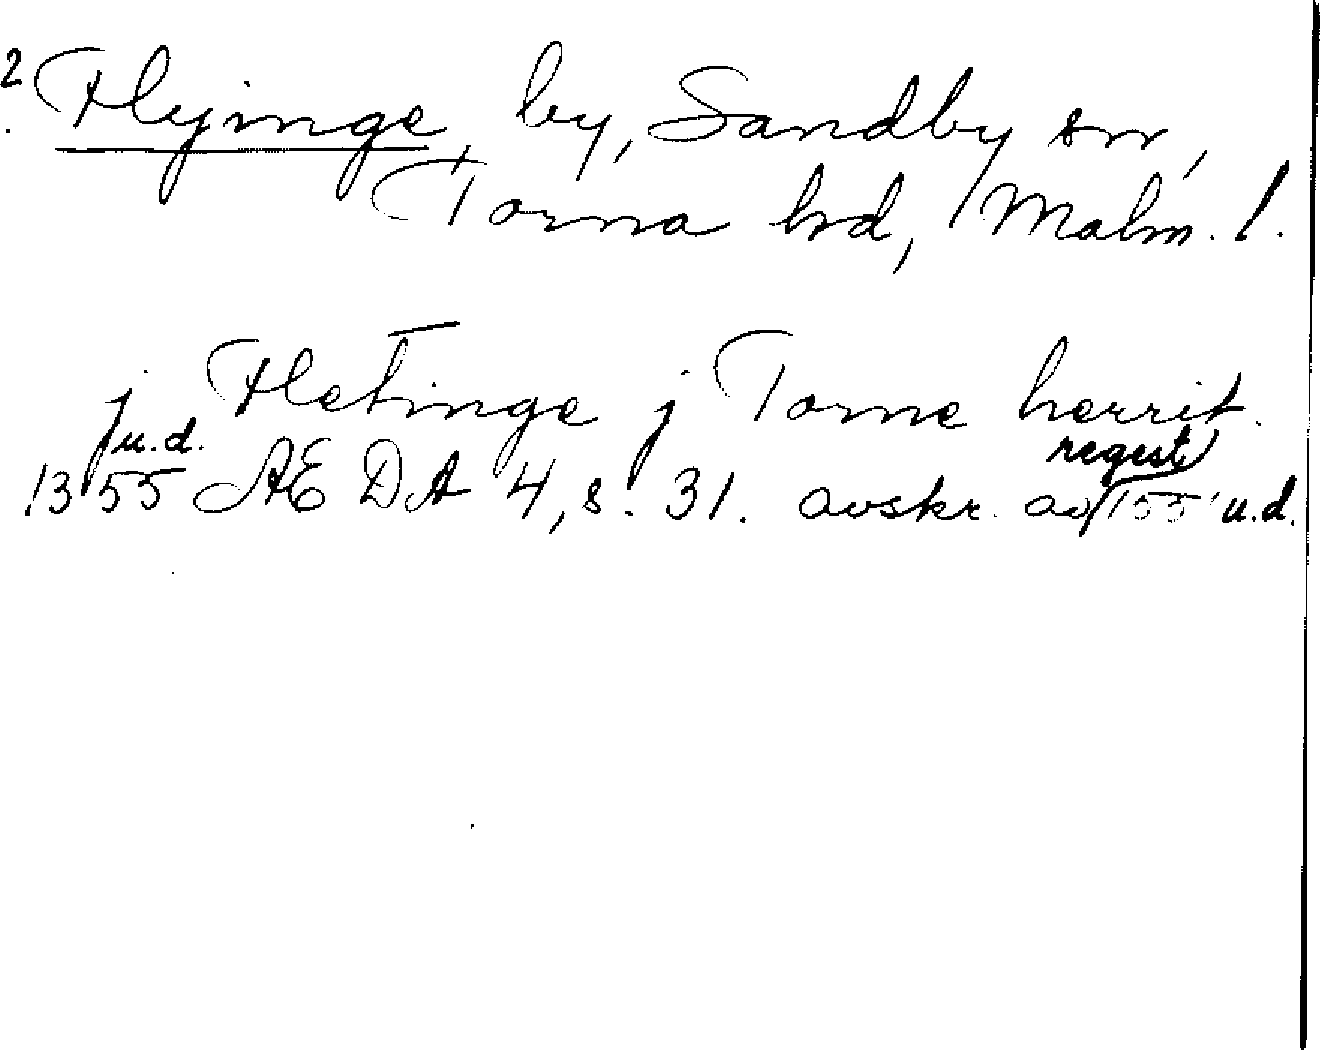 2 Flyinge, by, Sandby sn,
Torna hd, Malm. l.
j Fletinge j Torne herrit.
u.d. regest
1355 ÆDA 4, s. 31. avskr. av 155 u.d.